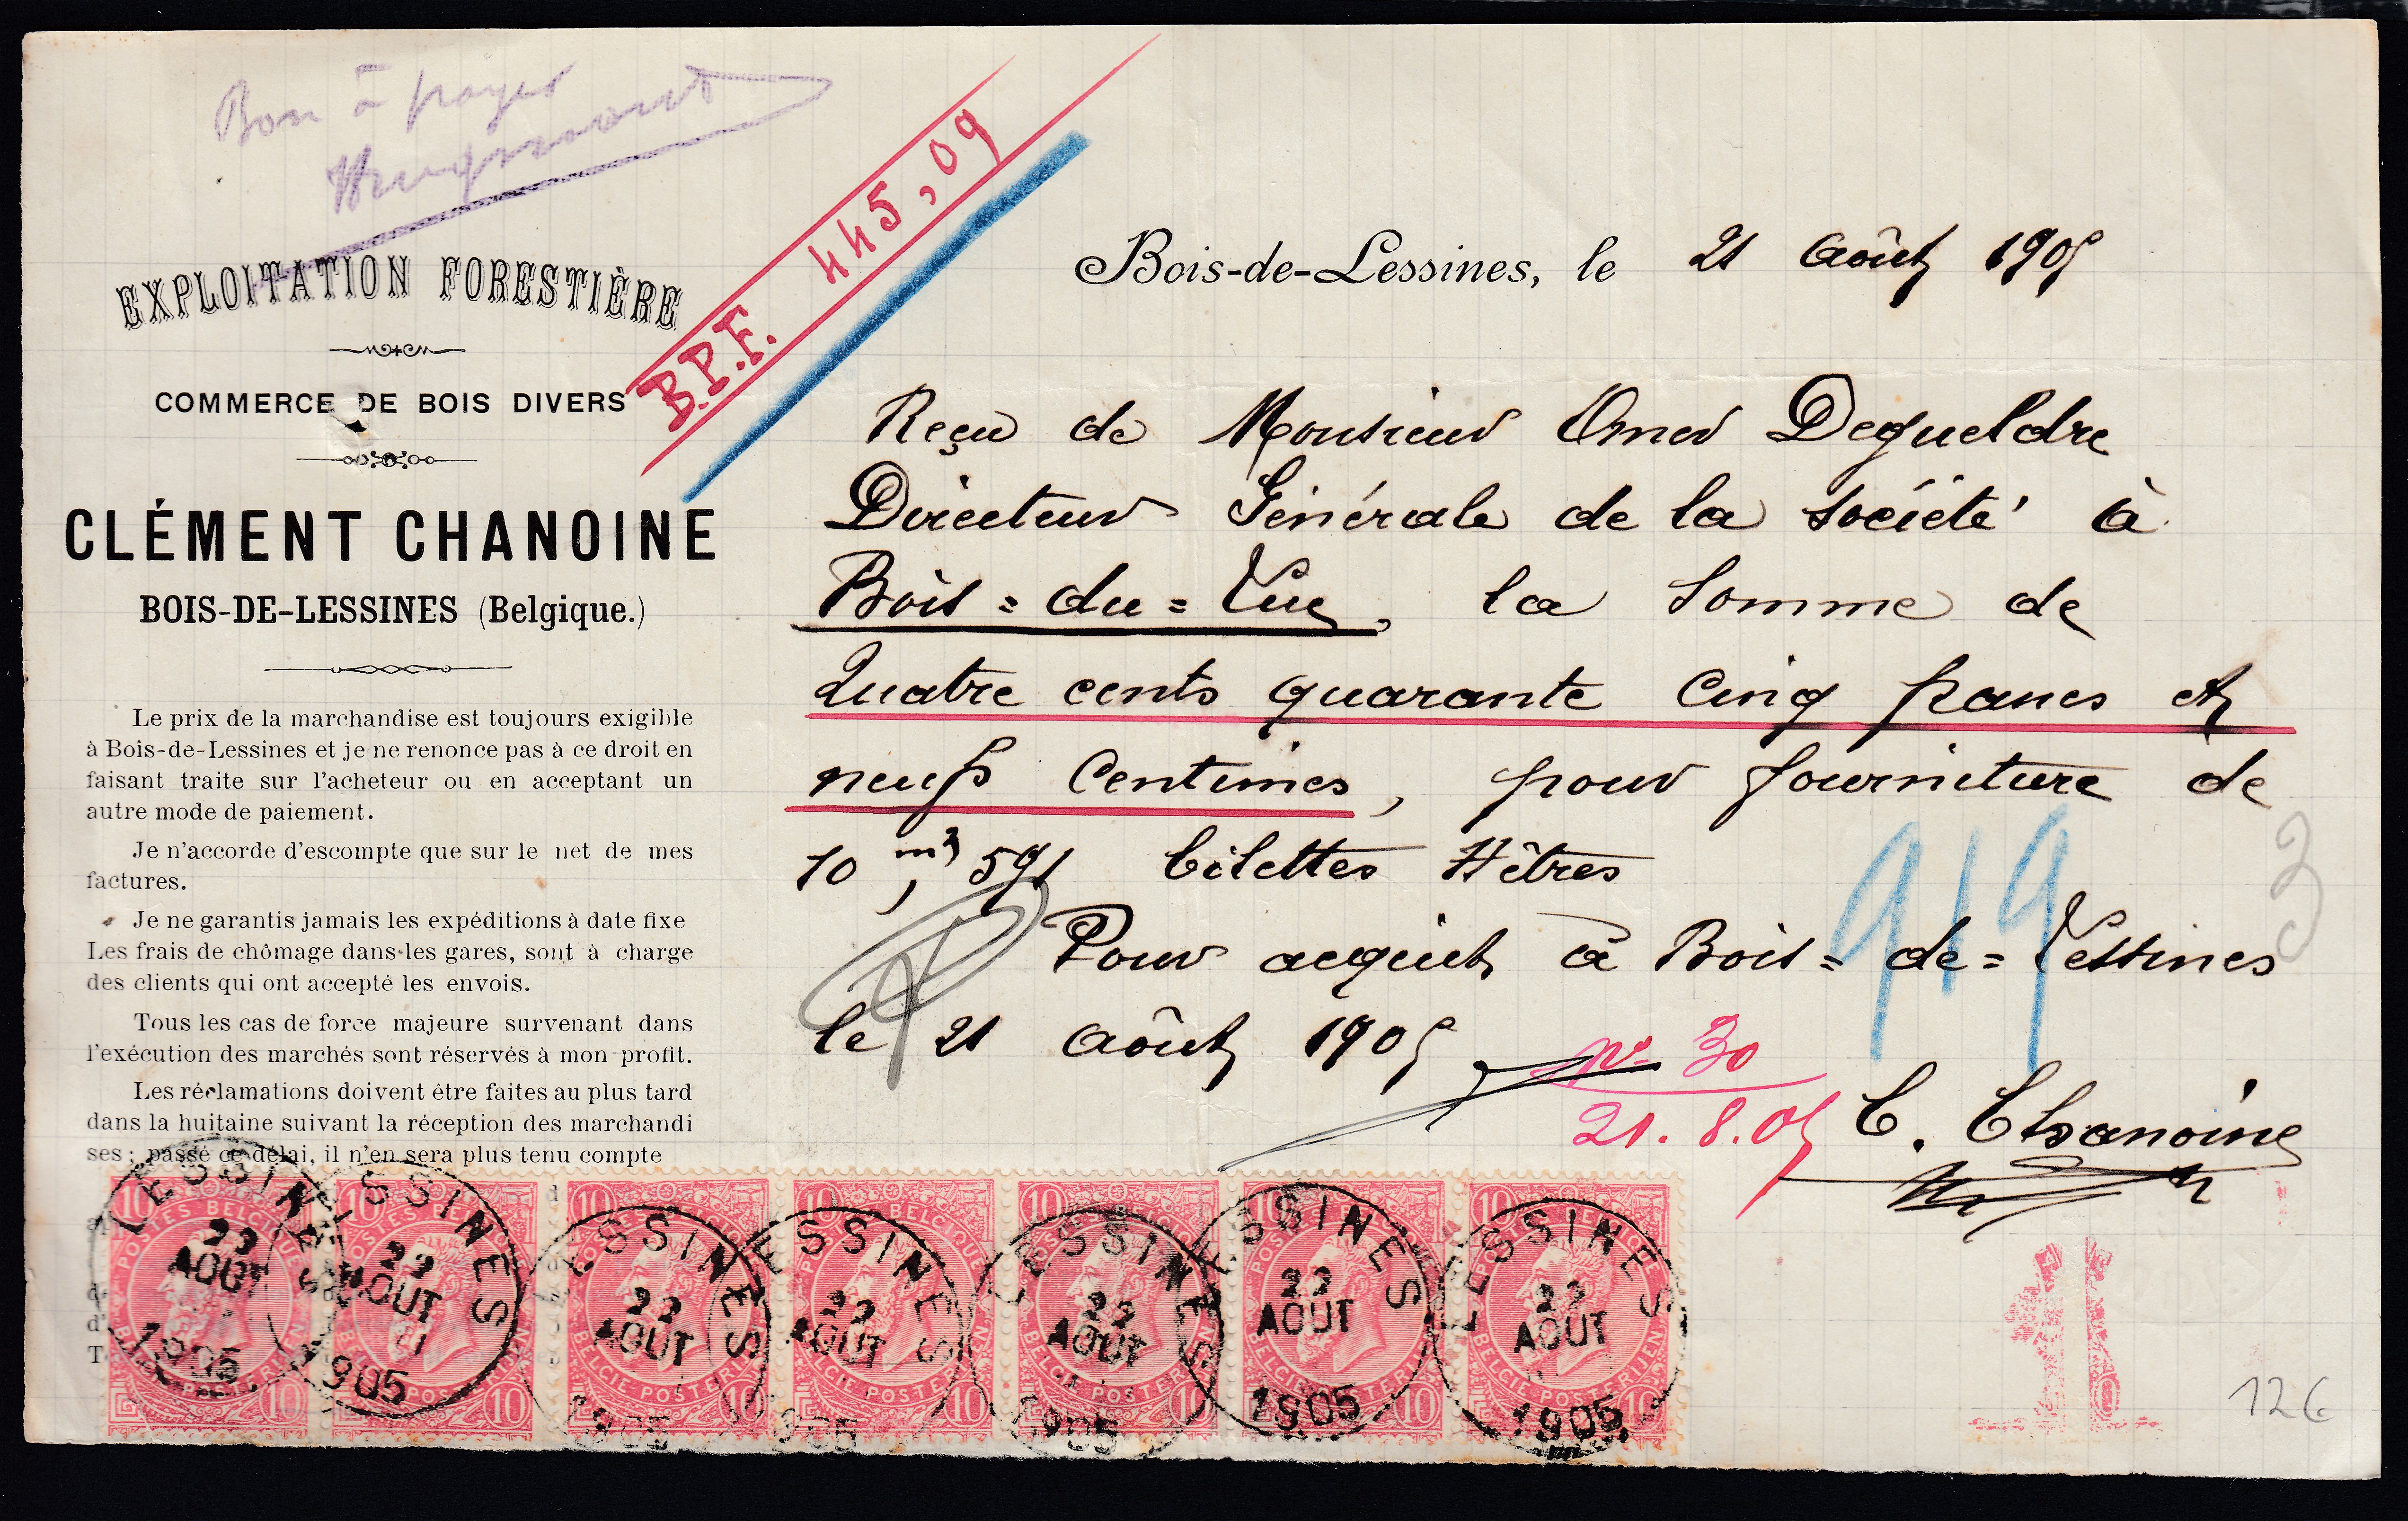 Bon à payer
B.P.F. 445,09
EXPLOITATION FORESTIÈRE
COMMERCE DE BOIS DIVERS
CLÉMENT CHANOINE
BOIS-DE-LESSINES (Belgique.)
Le prix de la marchandise est toujours exigible
à Bois-de-Lessines et je ne renonce pas à ce droit en
faisant traite sur l'acheteur ou en acceptant un
autre mode de paiement.
Je n'accorde d'escompte que sur le net de mes
factures.
Je ne garantis jamais les expéditions à date fixe
Les frais de chômage dans les gares, sont à charge
des clients qui ont accepté les envois.
Tous les cas de force majeure survenant dans
l'exécution des marchés sont réservés à mon profit.
Les réclamations doivent être faites au plus tard
dans la huitaine suivant la réception des marchandi
ses ; passé ce délai, il n'en sera plus tenu compte
Bois-de-Lessines, le 21 Août 1905
Reçu de Monsieur Omer Degueldre
Directeur Générale de la société à
Bois=du=Luc, la somme de
Quatre cents quarante Cinq francs et
neufs Centimes, pour fourniture de
10 m3, 591 bilettes Hêtres
Pour acquit à Bois=de=Lessines
le 21 Août 1905
919
No 30
21.8.05
C. Chanoine
LESSINES 22 AOUT 1905
LESSINES 22 AOUT 11 1905
LESSINES 22 AOUT 1905
LESSINES 22 AOUT 1905
LESSINES 22 AOUT 1905
LESSINES 22 AOUT 1905
LESSINES 22 AOUT 1905
10 POSTES BELGIQUE BELGIE POSTERIJEN 10
12€